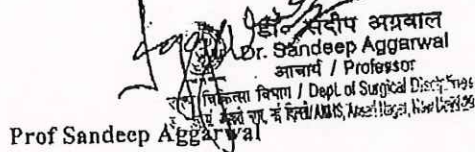 डॉ॰ संदीप अग्रवाल
Dr. Sandeep Aggarwal
आचार्य / Professor
चिकित्सा विभाग / Dept. of Surgical Disciplines
AIIMS, Ansari Nagar, New Delhi
Prof Sandeep Aggarwal